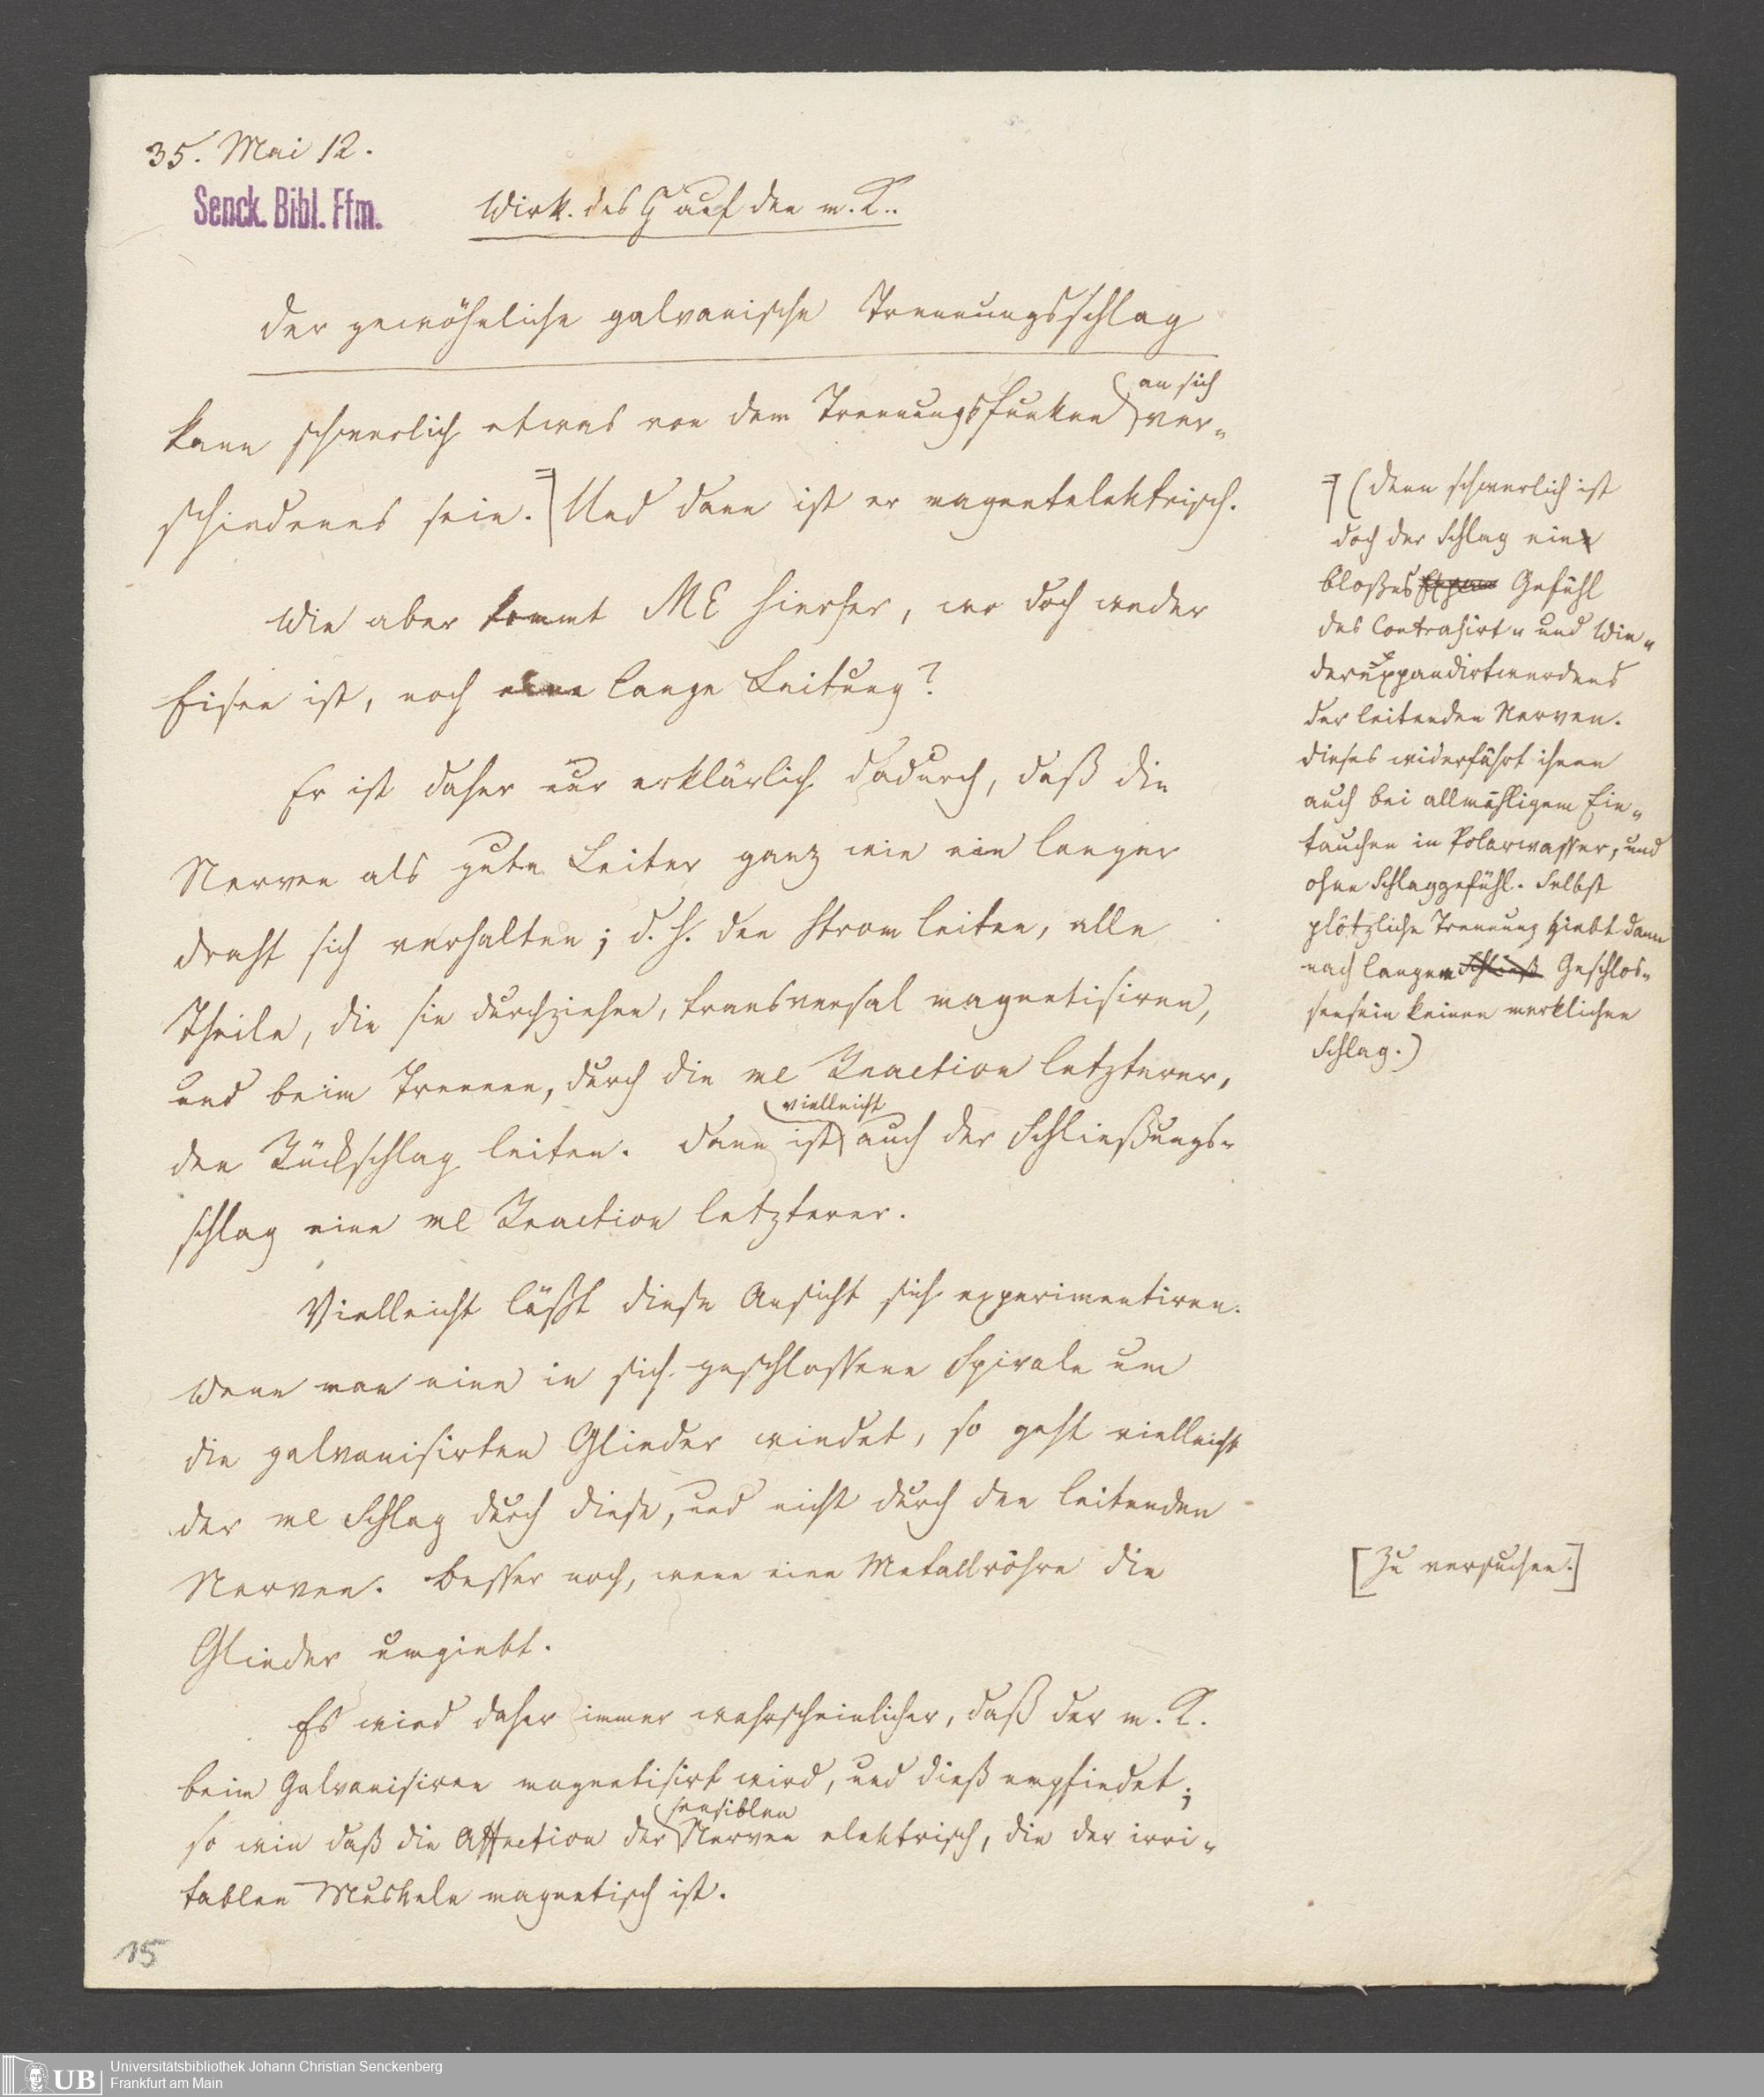 35. Mai 12.
Senck. Bibl. Ffm.
Wirk. des G auf den m. K..
Der gewöhnliche galvanische Trennungsschlag
an sich
kann schwerlich etwas von dem Trennungsfunken ver-
schiedenes sein. Und dann ist er magnetelektrisch.
Wie aber kommt ME hierher, wo doch weder
Eisen ist, noch eine lange Leitung?
Er ist daher nur erklärlich dadurch, daß die
Nerven als gute Leiter ganz wie ein langer
Draht sich verhalten; d. h. den Strom leiten, alle
Theile, die sie durchziehen, transversal magnetisiren,
und beim Trennen, durch die me Reaction letzterer,
vielleicht
den Rückschlag leiten. Dann ist auch der Schließungs-
schlag eine me Reaction letzterer.
Vielleicht läßt diese Ansicht sich experimentiren.
Wenn man eine in sich geschlossene Spirale um
die galvanisirten Glieder windet, so geht vielleicht
der me Schlag durch diese, und nicht durch den leitenden
Nerven. Besser noch, wenn eine Metallröhre die
Glieder umgiebt.
Es wird daher immer wahrscheinlicher, daß der m. K.
beim Galvanisiren magnetisirt wird, und dieß empfindet;
sensiblen
so wie daß die Affection der Nerven elektrisch, die der irri-
tablen Muskeln magnetisch ist.
(Denn schwerlich ist
doch der Schlag ein
bloßes Gefühl
des Contrahirt- und Wie-
derexpandirtwerdens
der leitenden Nerven.
Dieses widerfährt ihnen
auch bei allmähligem Ein-
tauchen in Polarwasser, und
ohne Schlaggefühl. Selbst
plötzliche Trennung giebt dann
nach langem Geschlos-
sensein keinen merklichen
Schlag.)
[Zu versuchen.]
15
UB
Universitätsbibliothek Johann Christian Senckenberg
Frankfurt am Main